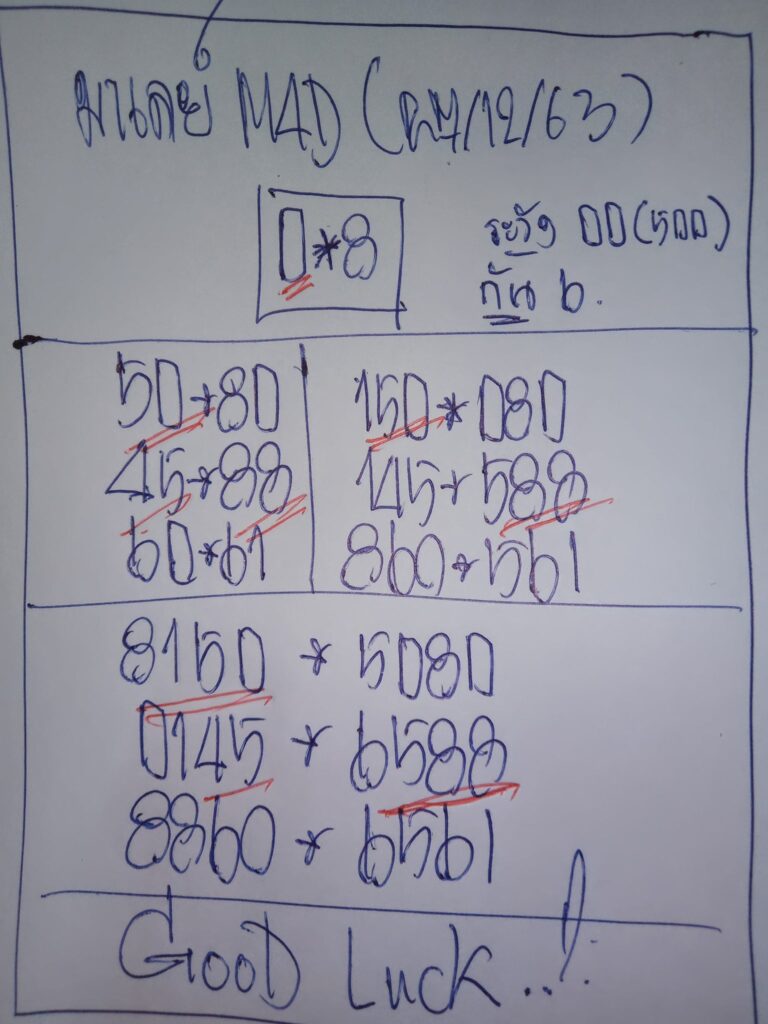 มาเลย์ M4D (27/12/63)
0*8
ระวัง 00(500)
กัน 6.
50*80
45*88
60*61
150*080
145*588
860*561
8150 * 5080
0145 * 6588
8860 * 6561
GooD Luck...!